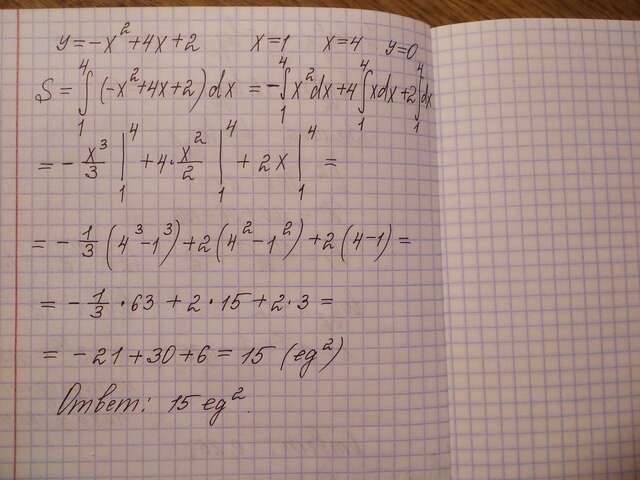 y = -x² + 4x + 2   x = 1   x = 4   y = 0
S = ∫₁⁴ (-x² + 4x + 2) dx = -∫₁⁴ x² dx + 4 ∫₁⁴ x dx + 2 ∫₁⁴ dx
= - x³/3 |₁⁴ + 4 · x²/2 |₁⁴ + 2x |₁⁴ =
= - 1/3 (4³ - 1³) + 2 (4² - 1²) + 2 (4 - 1) =
= - 1/3 · 63 + 2 · 15 + 2 · 3 =
= - 21 + 30 + 6 = 15 (ед²)
Ответ: 15 ед².